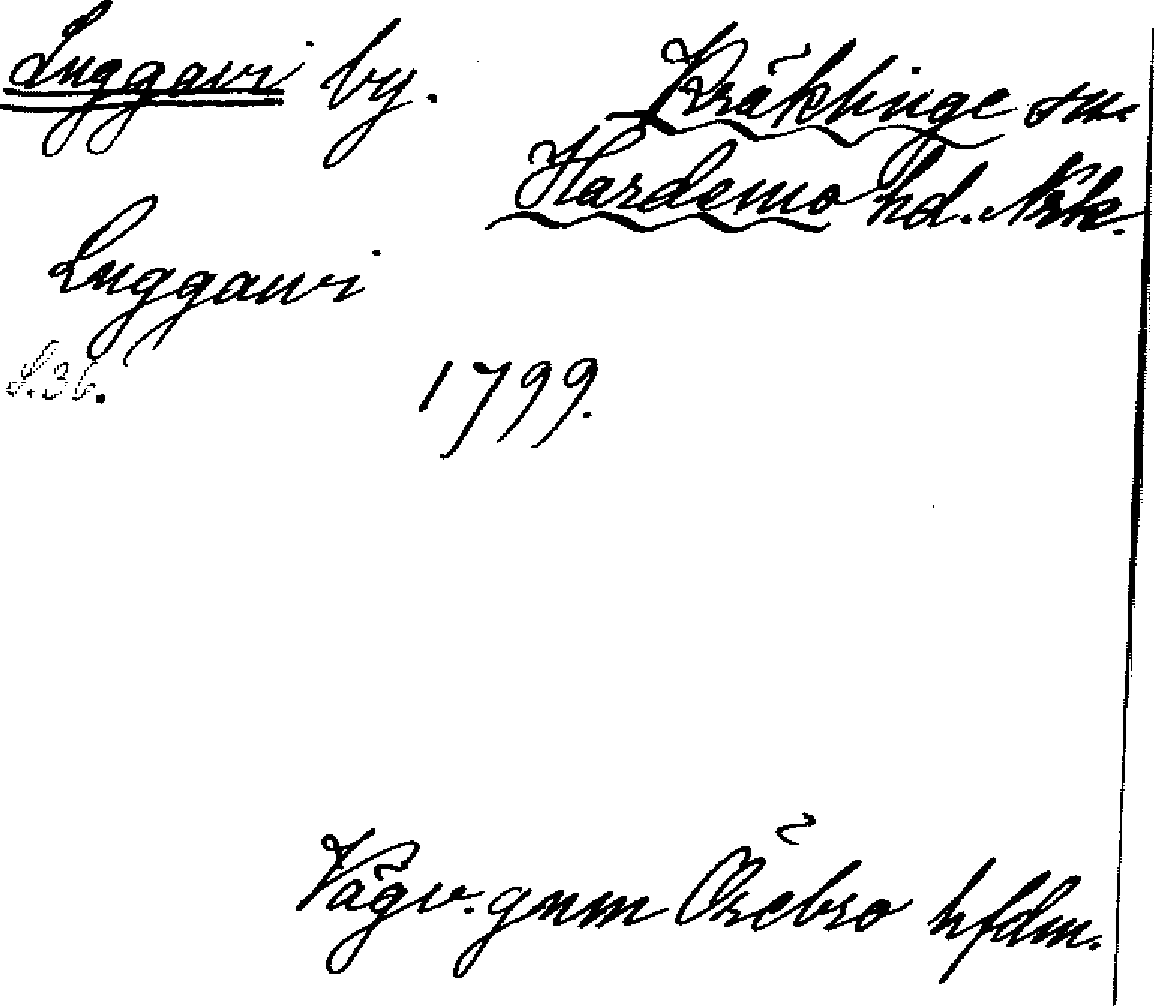 Luggavi by.
Kräklinge sn.
Hardemo hd. Nrk.
Luggavi
S.36.
1799.
Vägv. gnm Örebro hfdm.